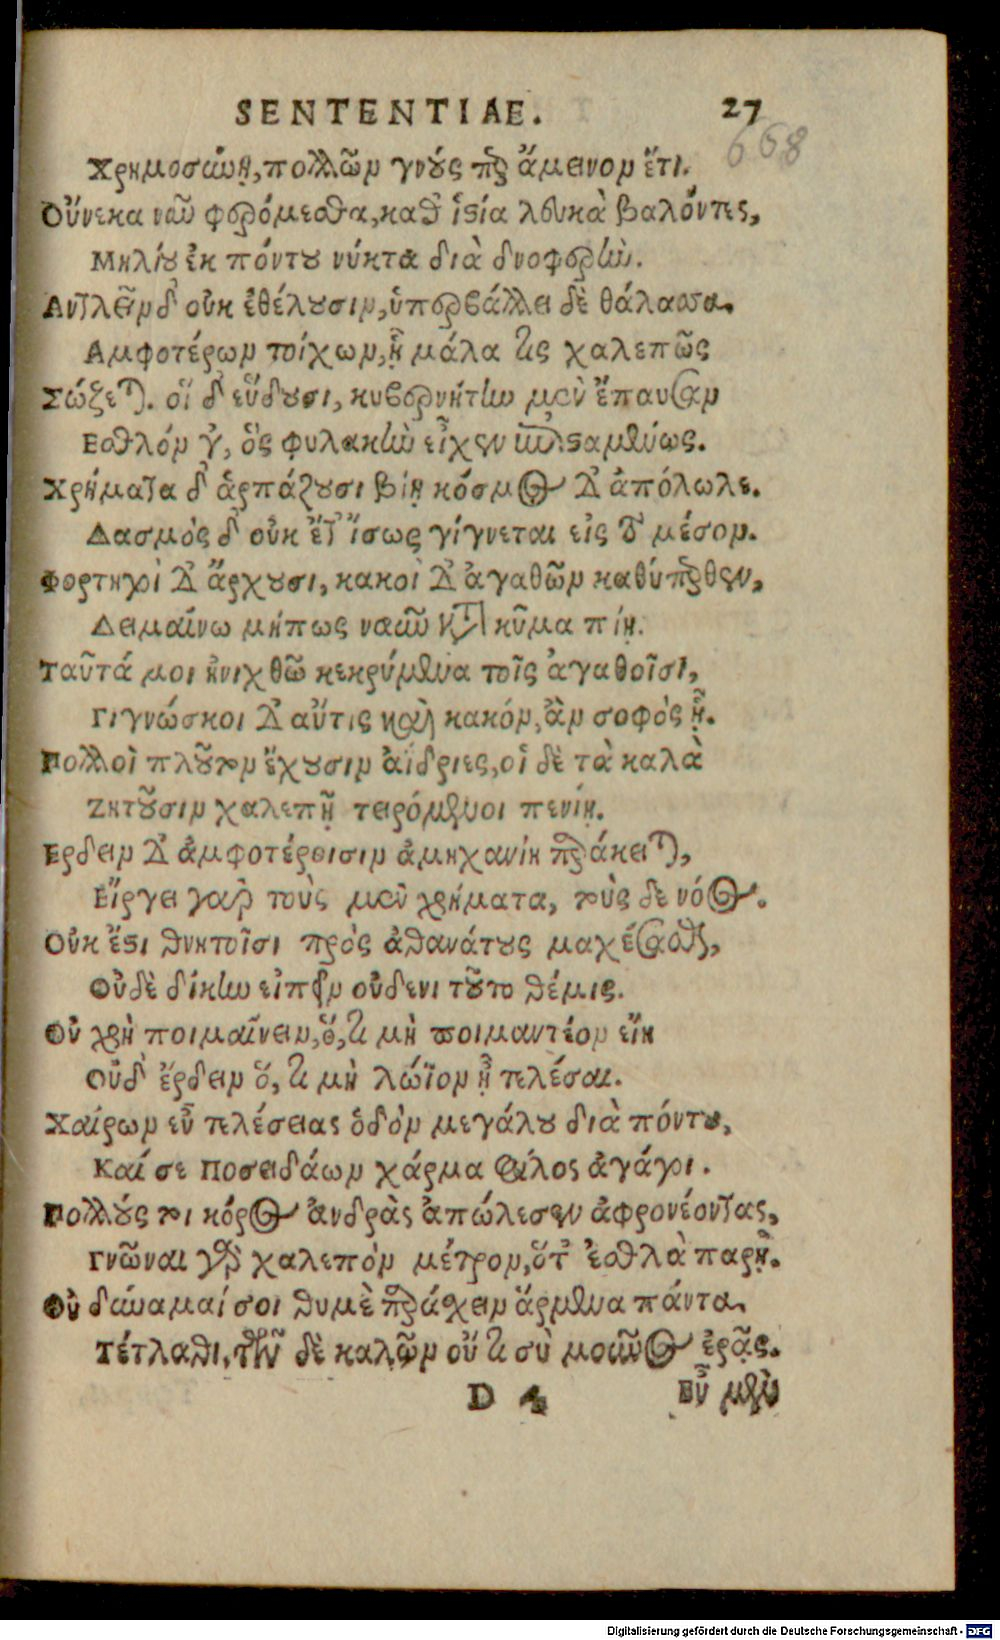 SENTENTIAE. 27
668
Χρημοσύνῃ, πολλῶν γνούς περ ἄμεινον ἔτι.
Οὕνεκα νῦν φερόμεσθα, καθ' ἱστία λευκὰ βαλόντες,
Μηλίου ἐκ πόντου νύκτα διὰ δνοφερήν.
Αντλεῖν δ' οὐκ ἐθέλουσιν, ὑπερβάλλει δὲ θάλασσα.
Αμφοτέρων τοίχων, ᾗ μάλα τις χαλεπῶς
Σώζεται. οἵ δ' εὕδουσι, κυβερνήτην μὲν ἔπαυσαν
Εσθλόν γ', ὅς φυλακὴν εἶχεν ἐπισταμένως.
Χρήματα δ' ἁρπάζουσι βίῃ κόσμος δ' ἀπόλωλε.
Δασμός δ' οὐκ ἔτ' ἴσως γίγνεται εἰς τὸ μέσον.
Φορτηγοὶ δ' ἄρχουσι, κακοὶ δ' ἀγαθῶν καθύπερθεν,
Δειμαίνω μήπως ναῦν κατὰ κῦμα πίῃ.
Ταῦτά μοι ᾐνιχθῶ κεκρύμμενα τοῖς ἀγαθοῖσι,
Γιγνώσκοι δ' αὖτις καὶ κακόν, ἂν σοφός ᾖ.
Πολλοὶ πλοῦτον ἔχουσιν ἀίδριες, οἱ δὲ τὰ καλὰ
Ζητοῦσιν χαλεπῇ τειρόμενοι πενίῃ.
Ερδειν δ' ἀμφοτέροισιν ἀμηχανίη παράκειται,
Εἴργει γὰρ τοὺς μὲν χρήματα, τοὺς δε νόος.
Οὐκ ἔστι θνητοῖσι πρὸς ἀθανάτους μαχέσασθαι,
Οὐδὲ δίκην εἰπεῖν οὐδενι τοῦτο θέμις.
Οὐ χρὴ ποιμαίνειν, ὅ, τι μὴ ποιμαντέον εἴη
Οὐδ' ἔρδειν ὅ, τι μὴ λώϊον ᾖ τελέσαι.
Χαίρων εὖ τελέσειας ὁδὸν μεγάλου διὰ πόντου,
Καί σε Ποσειδάων χάρμα φίλος ἀγάγοι.
Πολλούς τοι κόρος ἀνδρὰς ἀπώλεσεν ἀφρονέοντας,
Γνῶναι γὰρ χαλεπὸν μέτρον, ὅτ' ἐσθλὰ παρῇ.
Οὐ δύναμαί σοι θυμὲ παράσχειν ἄρμενα πάντα.
Τέτλαθι, τῶν δὲ καλῶν οὔτι σὺ μοῦνος ἐρᾷς.
D 4 Εὖ μὲν
Digitalisierung gefördert durch die Deutsche Forschungsgemeinschaft - DFG